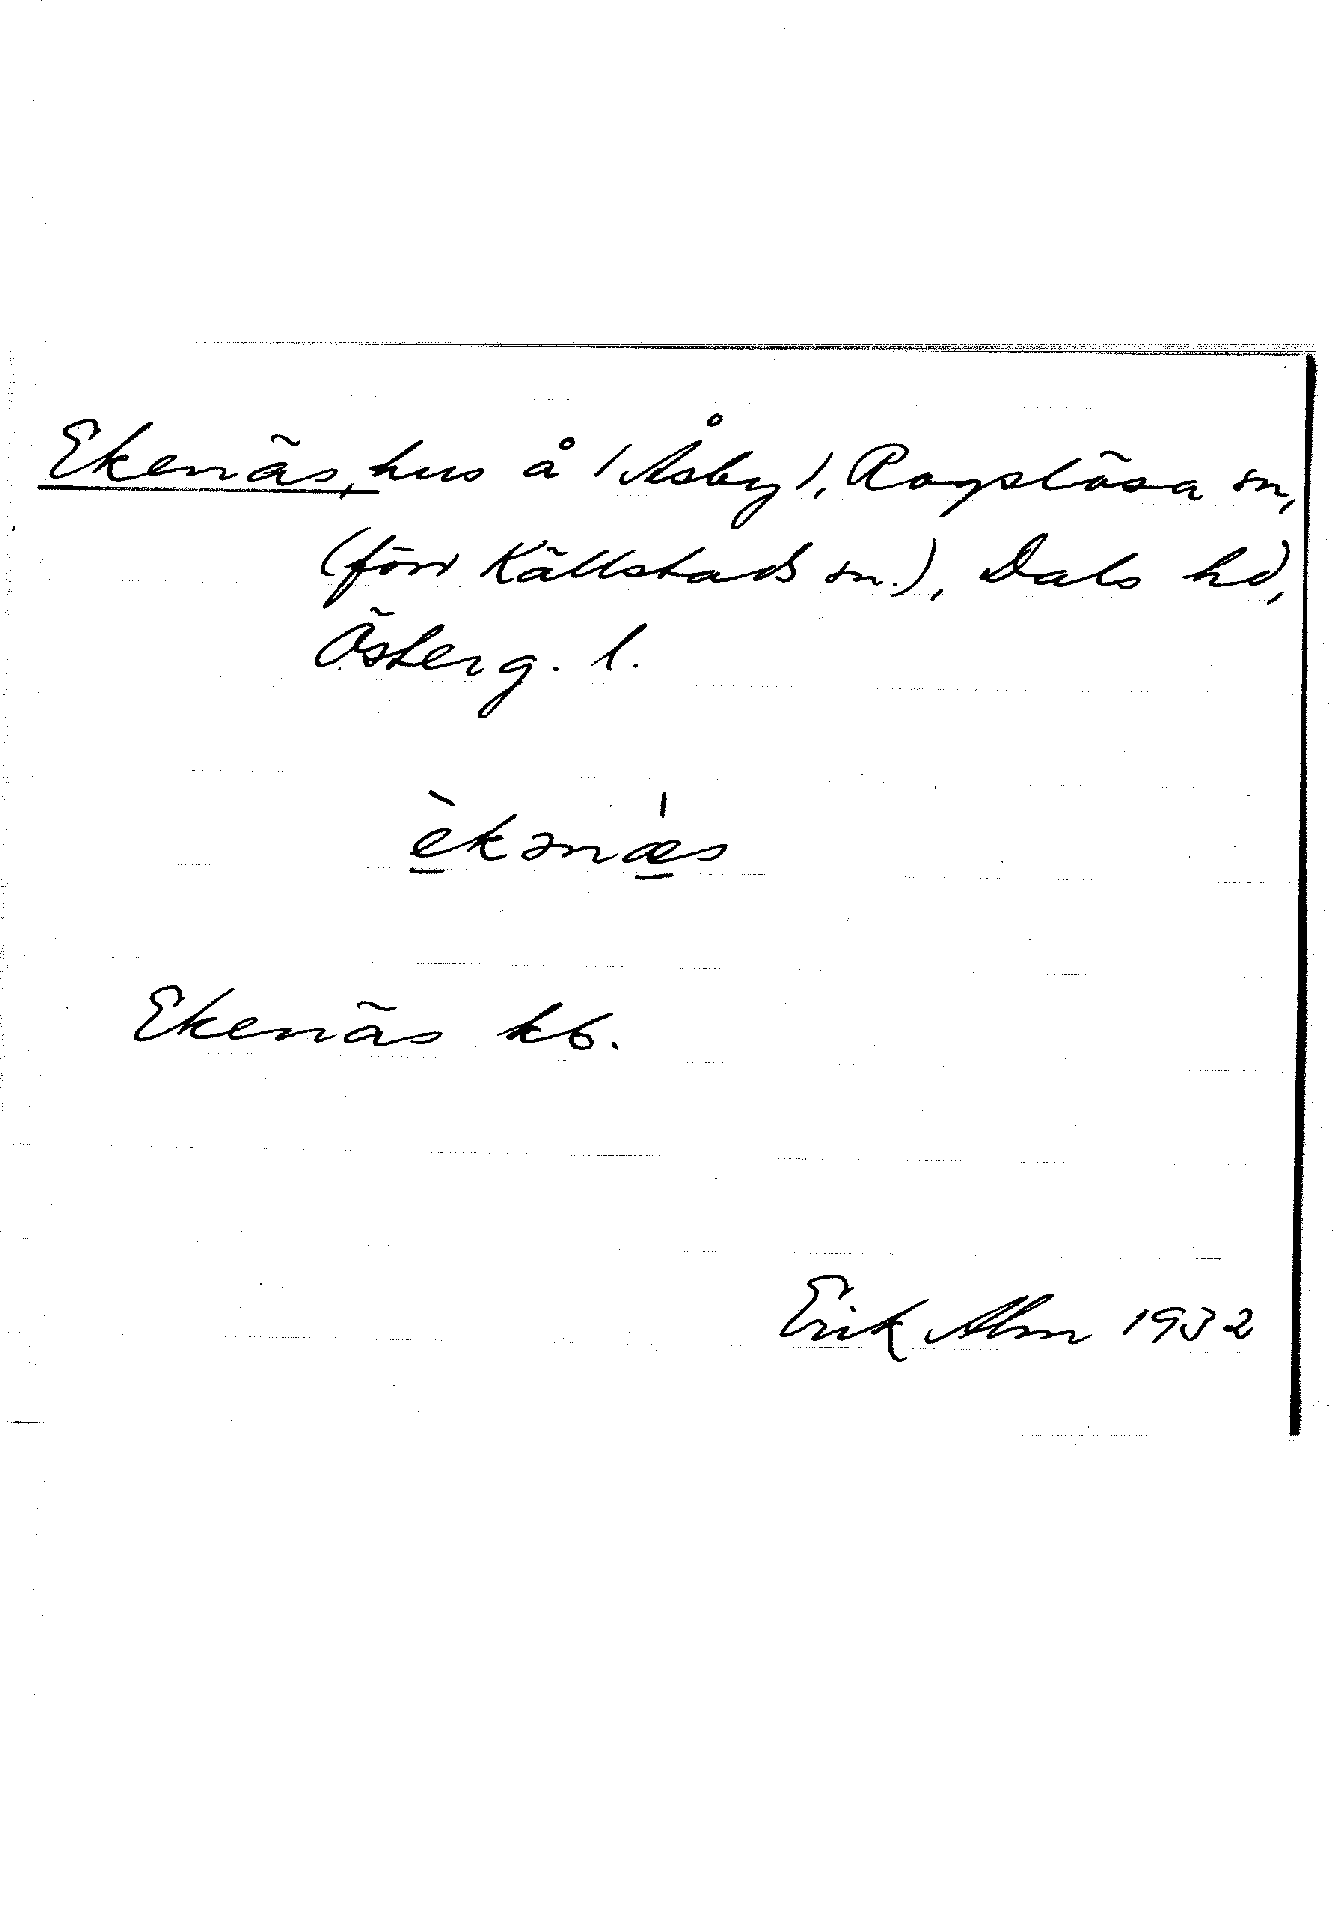 Ekenäs, hus å (Åsby), Rogslösa sn,
(förr Källstads sn.), Dals hd,
Österg. l.
èkənæ̀s
Ekenäs kb.
Erik Alm 1932